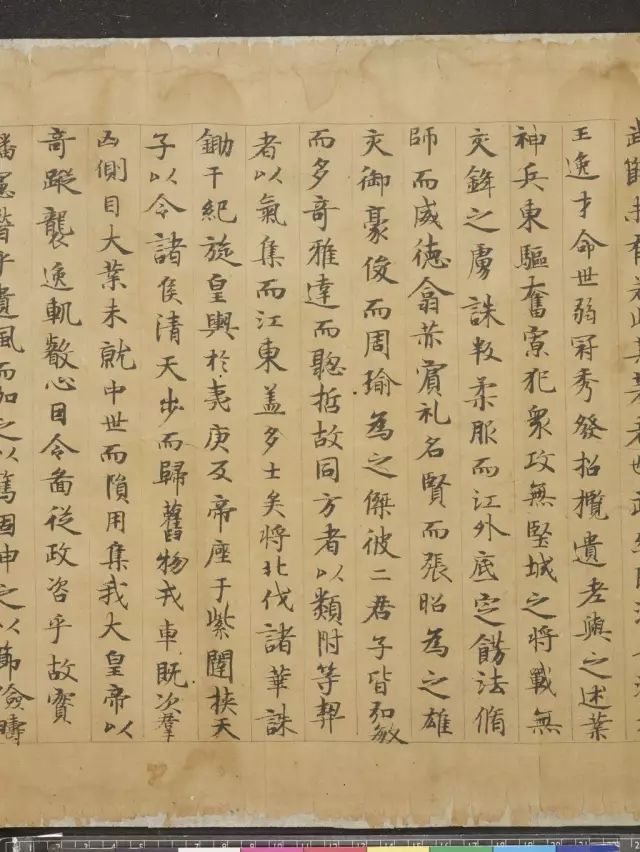 王逸才命世弱冠秀發招攬遺老與之述業
神兵東驅奮寮犯衆攻無堅城之將戰無
交鋒之虜誅叛柔服而江外底定餝法脩
師而威德翕赤賓礼名賢而張昭為之雄
交御豪俊而周瑜為之傑彼二君子皆弘敏
而多奇雅達而聡哲故同方者以類附等契
者以氣集而江東盖多士矣將北伐諸華誅
鋤干紀旋皇輿於夷庚反帝座于紫闥挾天
子以令諸侯清天步而歸舊物戎車既次羣
凶側目大業未就中世而隕用集我大皇帝以
奇蹤襲逸軌叡心因令啚従政咨乎故實
播憲稽乎遺風而加之以篤固申之以節儉疇